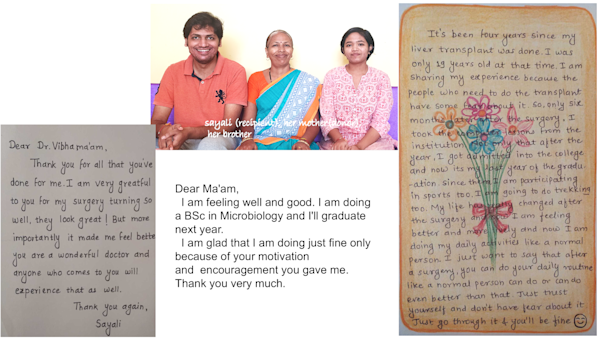 Dear Dr. Vibha ma'am,
Thank you for all that you've
done for me. I am very greatful
to you for my surgery turning so
well, they look great! But more
importantly it made me feel better
you are a wonderful doctor and
anyone who comes to you will
experience that as well.
Thank you again,
Sayali
sayali (recipient), her mother(donor)
her brother
Dear Ma'am,
I am feeling well and good. I am doing
a BSc in Microbiology and I'll graduate
next year.
I am glad that I am doing just fine only
because of your motivation
and encouragement you gave me.
Thank you very much.
It's been four years since my
liver transplant was done. I was
only 19 years old at that time. I am
sharing my experience because the
people who need to do the transplant
have some fear about it. So, only six
months surgery, I
took the from the
institution that after the
year, I got admitted into the college
and now my last year of the gradu-
-ation. since then I am participating
in sports too. I am going to do trekking
too. My life changed after
the surgery I am feeling
better and and now I am
doing my daily activities like a normal
person. I just want to say that after
a surgery, you can do your daily routine
like a normal person can do or can do
even better than that. Just trust
yourself and don't have fear about it
Just go through it & you'll be fine